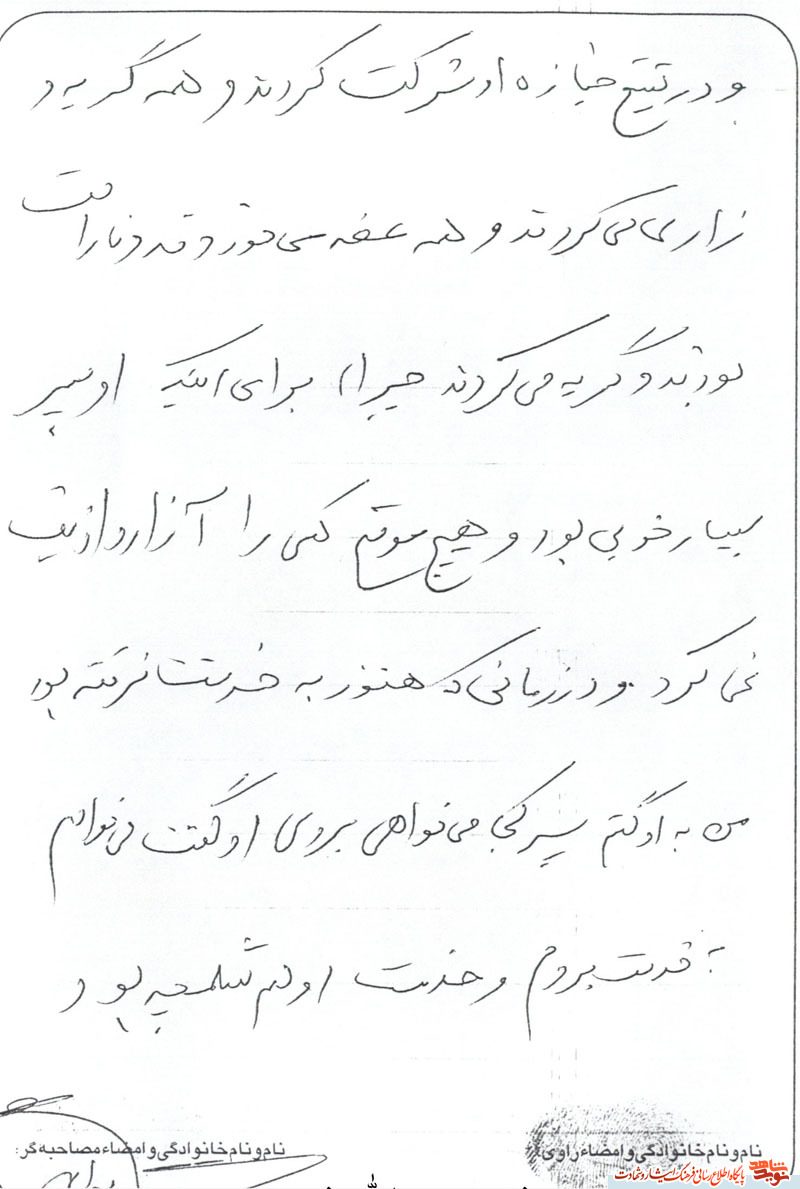 و در تشیع جنازه او شرکت کردند و همه گریه و
زاری می کردند و همه غصه می خوردند و ناراحت
بودند و گریه می کردند چرا برای اینکه او پسر
بسیار خوبی بود و هیچ موقع کسی را آزار و اذیت
نمی کرد و در زمانی که هنوز به خدمت نرفته بود
من به او گفتم پسر کجا می خواهی بروی او گفت می خواهم
به خدمت بروم و خدمت او هم شلمچه بود و
نام و نام خانوادگی و امضاء راوی: نام و نام خانوادگی و امضاء مصاحبه گر:
نوید شاهد پایگاه اطلاع رسانی فرهنگ ایثار و شهادت